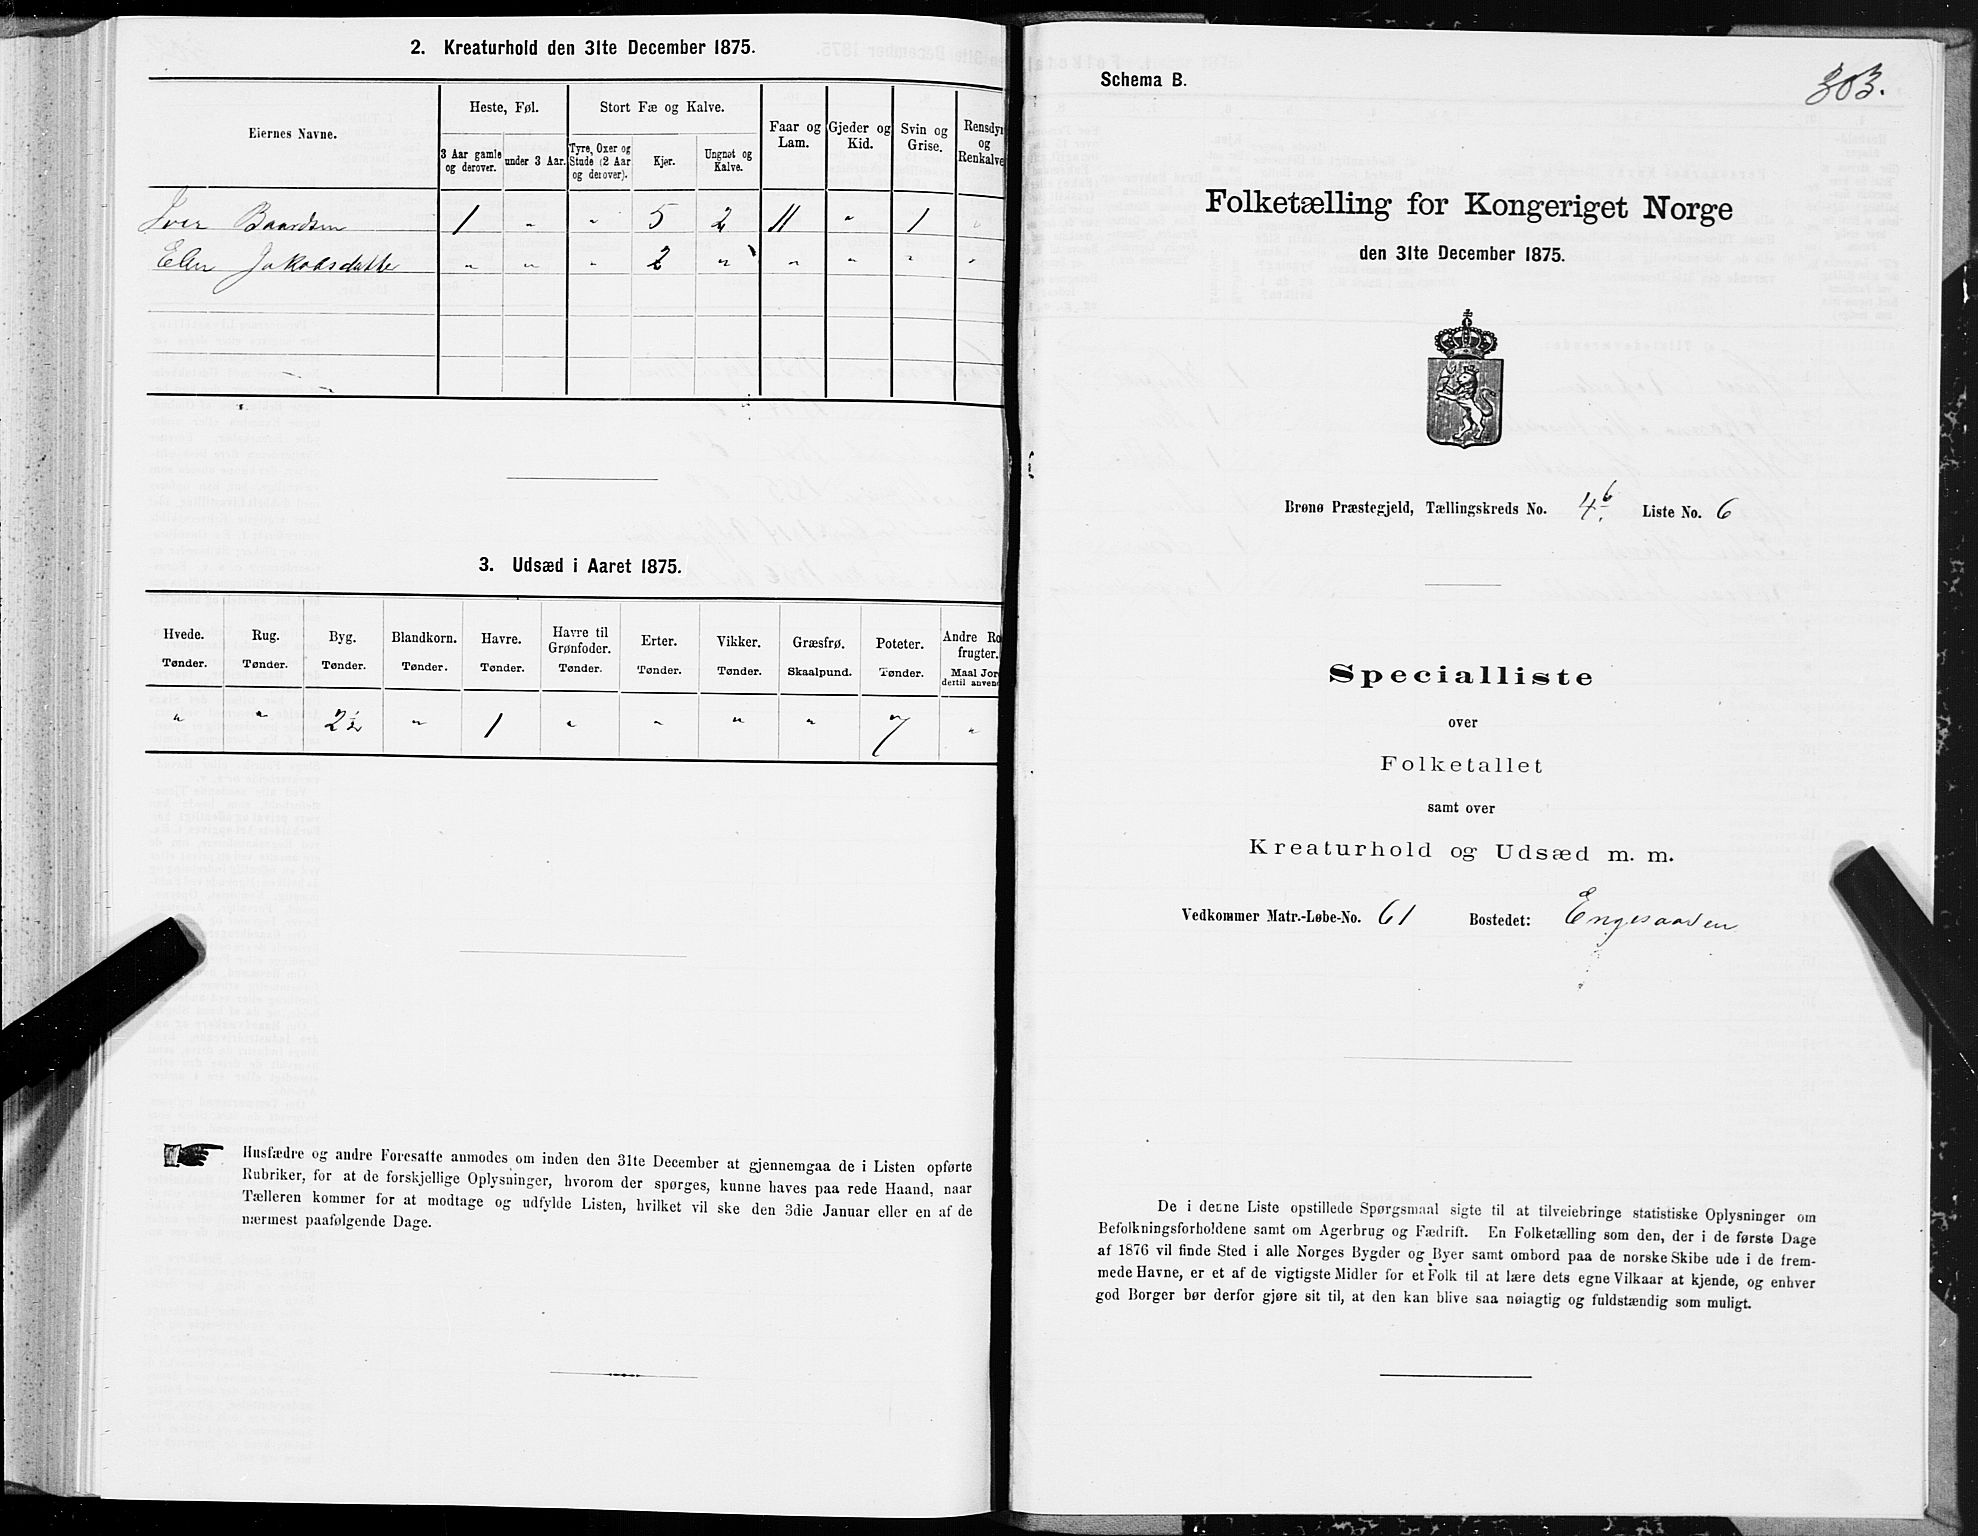 2. Kreaturhold den 31te December 1875.
Eiernes Navne.
Heste, Føl.
Stort Fæ og Kalve.
Faar og Lam.
Gjeder og Kid.
Svin og Grise.
Rensdyr og Renkalve
3 Aar gamle og derover.
under 3 Aar.
Tyre, Oxer og Stude (2 Aar og derover).
Kjør.
Ungnøt og Kalve.
Iver Baardsen 1 " " 5 2 11 " 1 "
Elen Jakobsdatte " " " 2 " " " " "
3. Udsæd i Aaret 1875.
Hvede. Rug. Byg. Blandkorn. Havre. Havre til Grønfoder. Erter. Vikker. Græsfrø. Poteter. Andre Ro frugter.
Tønder. Tønder. Tønder. Tønder. Tønder. Tønder. Tønder. Tønder. Skaalpund. Tønder. Maal Jor dertil anven
" " 2 1/2 " 1 " " " " 7 "
Husfædre og andre Foresatte anmodes om inden den 31te December at gjennemgaa de i Listen opførte
Rubriker, for at de forskjellige Oplysninger, hvorom der spørges, kunne haves paa rede Haand, naar
Tælleren kommer for at modtage og udfylde Listen, hvilket vil ske den 3die Januar eller en af de
nærmest paafølgende Dage.
Schema B.
303.
Folketælling for Kongeriget Norge
den 31te December 1875.
Brønø Præstegjeld, Tællingskreds No. 4b. Liste No. 6
Specialliste
over
Folketallet
samt over
Kreaturhold og Udsæd m. m.
Vedkommer Matr.-Løbe-No. 61 Bostedet: Engesaasen
De i denne Liste opstillede Spørgsmaal sigte til at tilveiebringe statistiske Oplysninger om
Befolkningsforholdene samt om Agerbrug og Fædrift. En Folketælling som den, der i de første Dage
af 1876 vil finde Sted i alle Norges Bygder og Byer samt ombord paa de norske Skibe ude i de frem-
mede Havne, er et af de vigtigste Midler for et Folk til at lære dets egne Vilkaar at kjende, og enhver
god Borger bør derfor gjøre sit til, at den kan blive saa nøiagtig og fuldstændig som muligt.